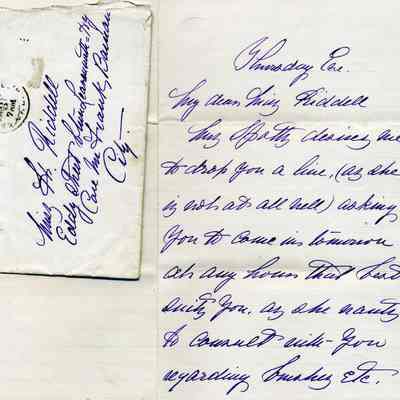 Miss H. Riddell
Eddy Street
Care Mr Frank
City
Thursday Eve.
My dear Miss Riddell
Miss Spotts desires me
to drop you a line, (as she
is not at all well) asking
you to come in tomorrow
at any hour that best
suits you. as she wants
to consult with you
regarding smokes etc.